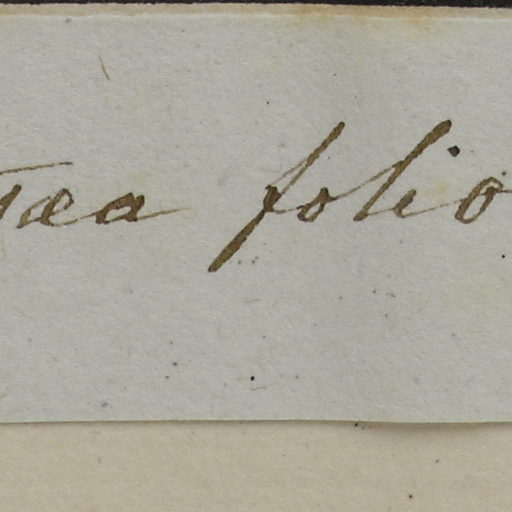 tæa folio